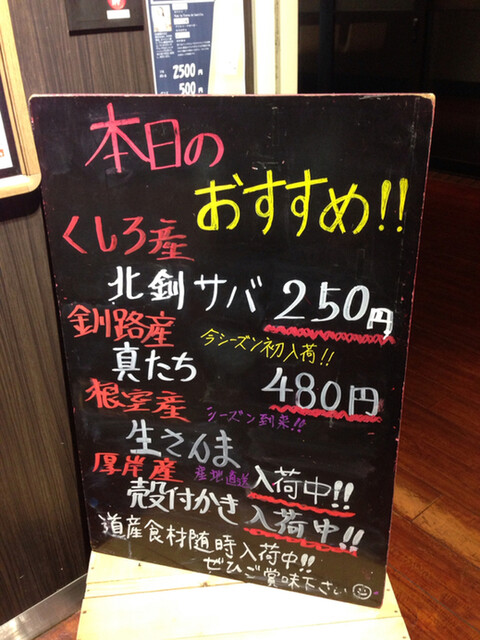 2500円
500円
本日の
おすすめ!!
くしろ産
北釧サバ 250円
釧路産 今シーズン初入荷!!
真たち 480円
根室産 シーズン到来!!
生さんま 入荷中!!
厚岸産 産地直送
殻付かき 入荷中!!
道産食材随時入荷中!!
ぜひご賞味下さい